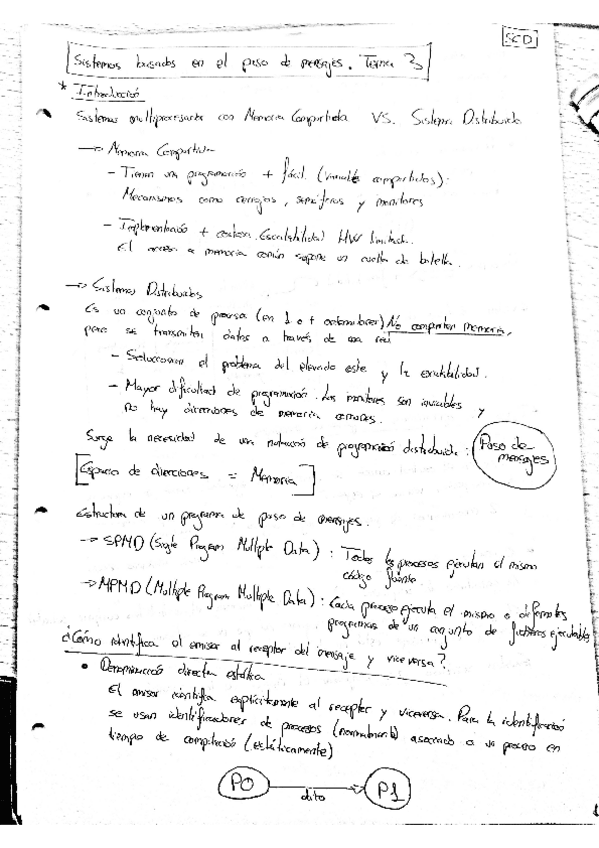 SCD
Sistemas basados en el paso de mensajes. Tema 3
* Introducción
Sistemas multiprocesador con Memoria Compartida VS. Sistema Distribuido
→ Memoria Compartida
- Tienen una programación + fácil (variables compartidas).
Mecanismos como cerrojos, semáforos y monitores
- Implementación + costosa. Escalabilidad HW limitada.
El acceso a memoria común supone un cuello de botella.
→ Sistemas Distribuidos
Es un conjunto de procesos (en 1 o + ordenadores) No comparten memoria,
pero se transmiten datos a través de una red
- Solucionan el problema del elevado coste y la escalabilidad.
- Mayor dificultad de programación. Los monitores son inviables y
no hay direcciones de memoria comunes.
Surge la necesidad de una notación de programación distribuida: Paso de
mensajes
[Espacio de direcciones = Memoria]
Estructura de un programa de paso de mensajes.
→ SPMD (Single Program Multiple Data): Todos los procesos ejecutan el mismo
código fuente.
→ MPMD (Multiple Program Multiple Data): Cada proceso ejecuta el mismo o diferentes
programas de un conjunto de ficheros ejecutables
¿Cómo identifica al emisor al receptor del mensaje y viceversa?
• Denominación directa estática
El emisor identifica explícitamente al receptor y viceversa. Para la identificación
se usan identificadores de procesos (normalmente) asociado a un proceso en
tiempo de compilación (estáticamente)
P0 dato P1
1